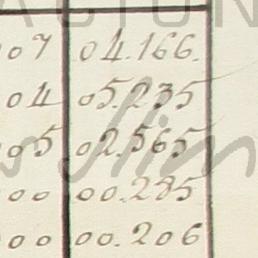 007 04.166.
04 05.235
05 02.565
00 00.285
00 00.206